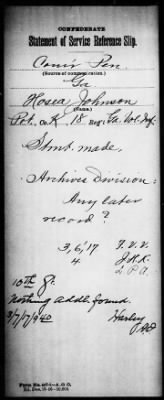 CONFEDERATE
Statement of Service Reference Slip.
Com'r Pen
(Source of communication.)
Ga
Hosea Johnson
(Name.)
Pvt. Co. K 18 Reg't Ga. Vol. Inf.
Stmt. made.
Archives Division:
Any later
record?
3/6/17 F.V.V.
4 J.H.K.
L.P.A.
10th
Nothing addl. found.
3/7/17